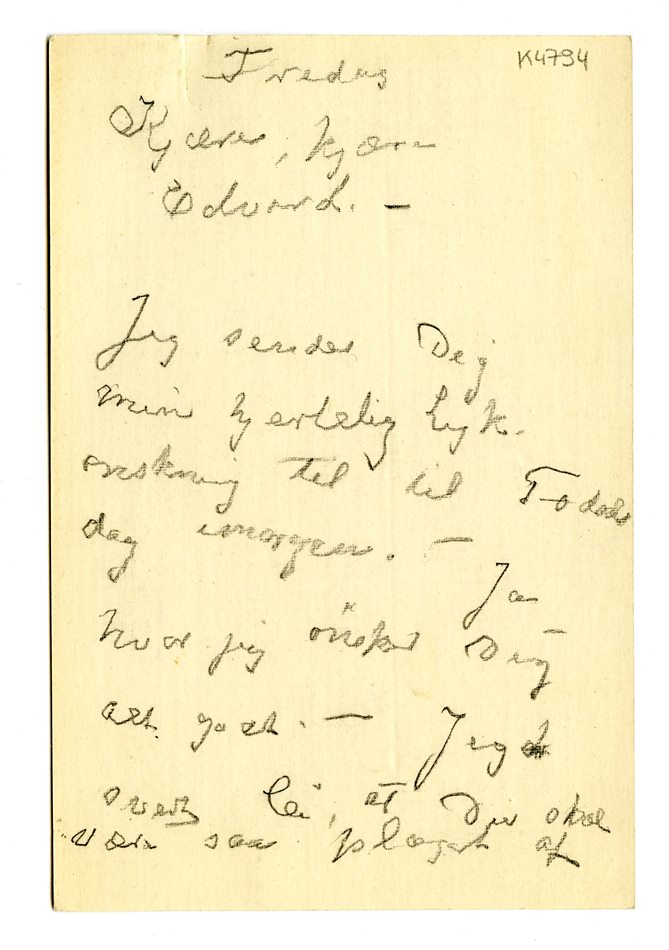 K4794
Fredag
Kjære, kjære
Edvard. —
Jeg sender Dig
min hjertelig Lyk-
ønskning til til Fødsels
dag imorgen. —
Ja
hvor jeg ønsker Dig
alt godt. — Jeg er
svert lei, at Du skal
være saa plaget af